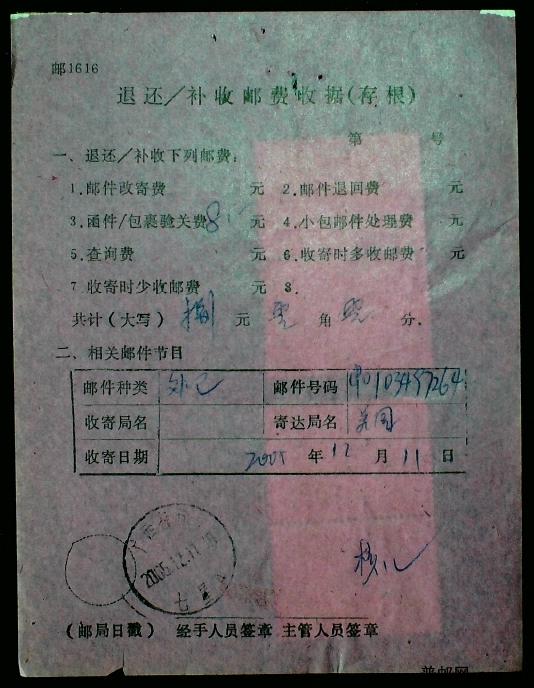 邮1616
退还/补收邮费收据(存根)
第 号
一、退还/补收下列邮费:
1.邮件改寄费 元 2.邮件退回费 元
3.函件/包裹验关费8.- 元 4.小包邮件处理费 元
5.查询费 元 6.收寄时多收邮费 元
7.收寄时少收邮费 元 8.
共计(大写) 捌 元 零 角 分.
二、相关邮件节目
邮件种类 邮件号码
收寄局名 寄达局名 美国
收寄日期 2005 年 12 月 11 日
2005.12.11
(邮局日戳) 经手人员签章 主管人员签章
普邮网